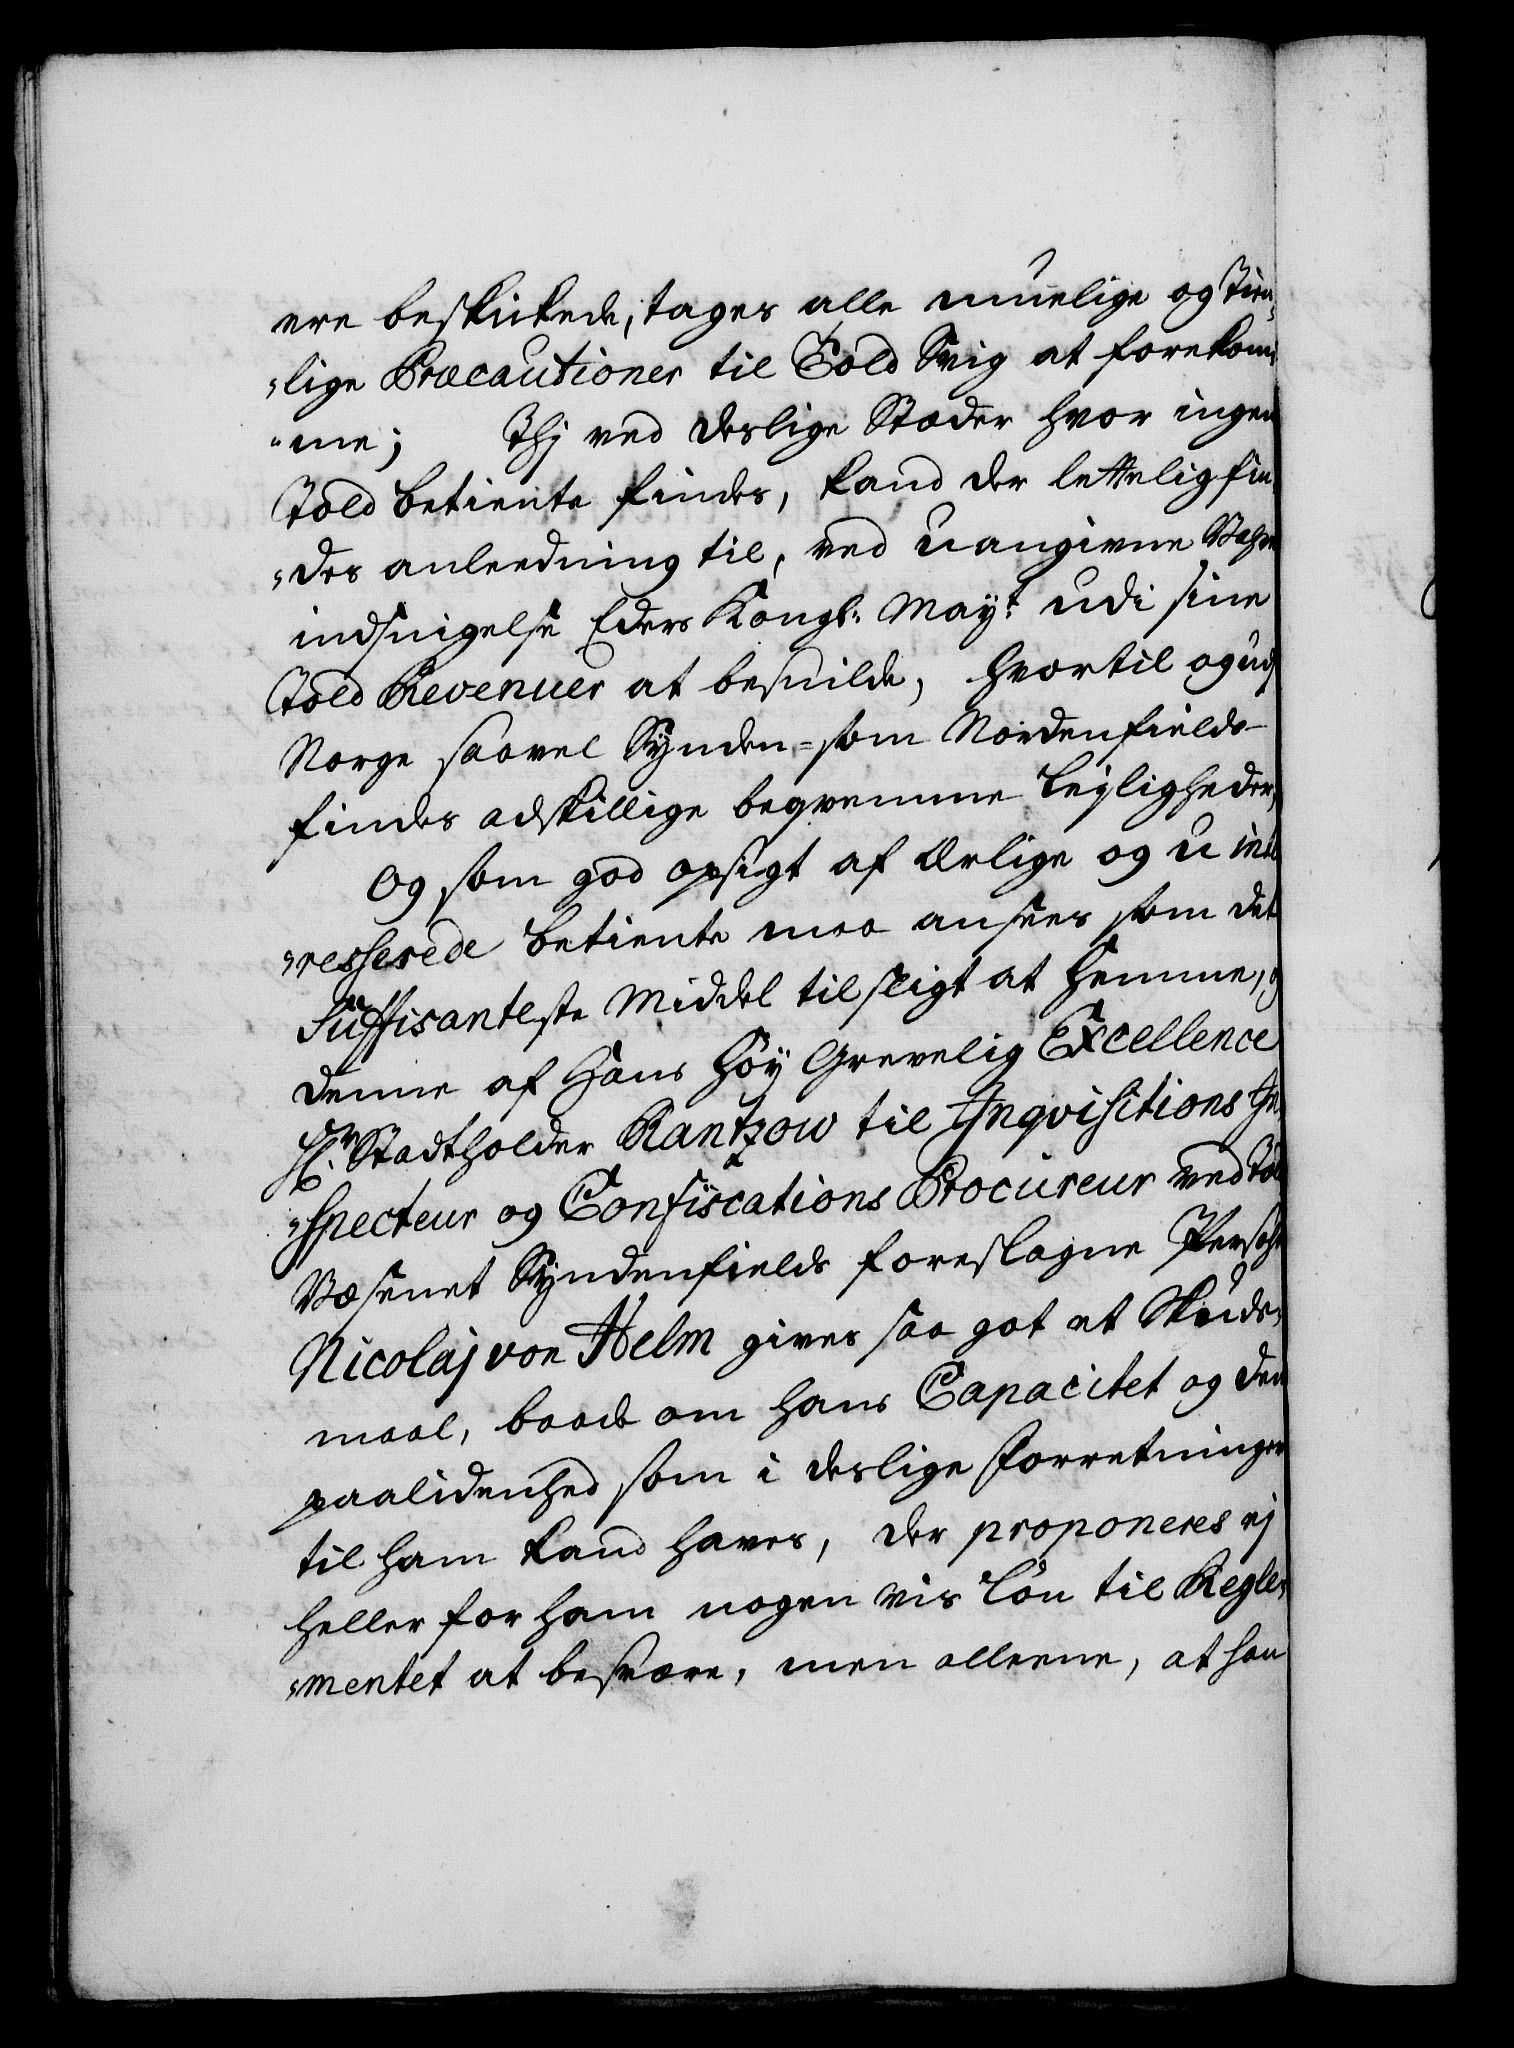 ere beskikede, tages alle muelige og tien-
"lige Præcautioner til Told Svig at forekom-
"me; Thj ved deslige Stæder hvor ingen
Told betiente findes, kand der lettelig fin-
"des anleedning til, ved uangivne Vahres
indsnigelse Eders Kongl: Mayt: udi sine
Told Revenuer at besnilde, hvortil og udj
Norge saavel Synden= som Nordenfields
findes adskillige beqvemme leyligheder,
Og som god opsigt af ærlige og u inte-
"resserede betiente maa ansees som det
Suffisanteste Middel til sligt at hemme, og
denne af Hans Høy Grevelig Excellence
Hr. Stadtholder Rantzow til Inqvisitions In-
"specteur og Confiscations Procureur ved Told
Væsenet Syndenfields foreslagne Persohn
Nicolaj von Helm gives saa got et Skuds-
maal, baade om hans Capacitet og den
paalidenhed som i deslige Forretninger
til ham kand haves, der proponeres ej
heller for ham nogen vis løn til Regle-
"mentet at besvære, men alleene, at han